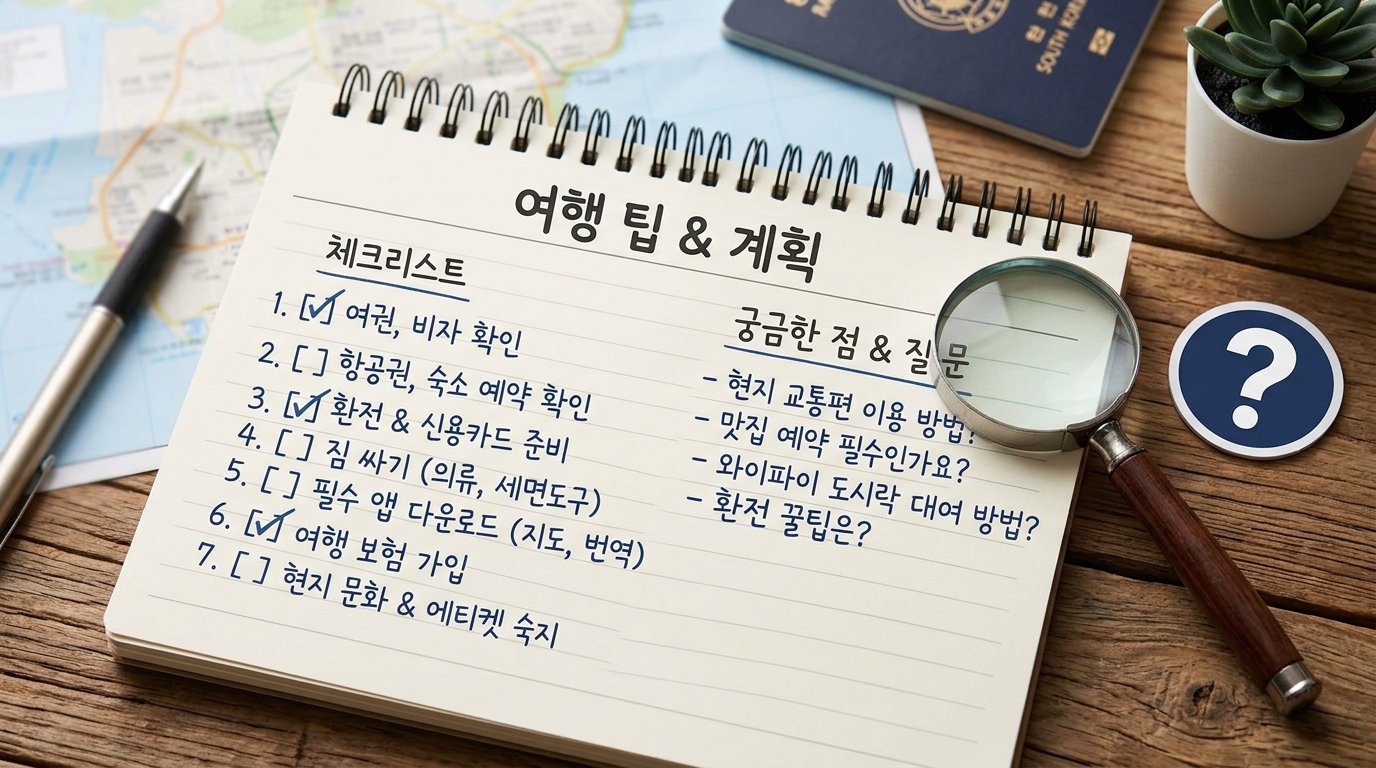 SOUTH KOREA
여행 팁 & 계획
체크리스트
1. [✓] 여권, 비자 확인
2. [ ] 항공권, 숙소 예약 확인
3. [✓] 환전 & 신용카드 준비
4. [ ] 짐 싸기 (의류, 세면도구)
5. [ ] 필수 앱 다운로드 (지도, 번역)
6. [✓] 여행 보험 가입
7. [ ] 현지 문화 & 에티켓 숙지
궁금한 점 & 질문
- 현지 교통편 이용 방법?
- 맛집 예약 필수인가요?
- 와이파이 도시락 대여 방법?
- 환전 꿀팁은?
?